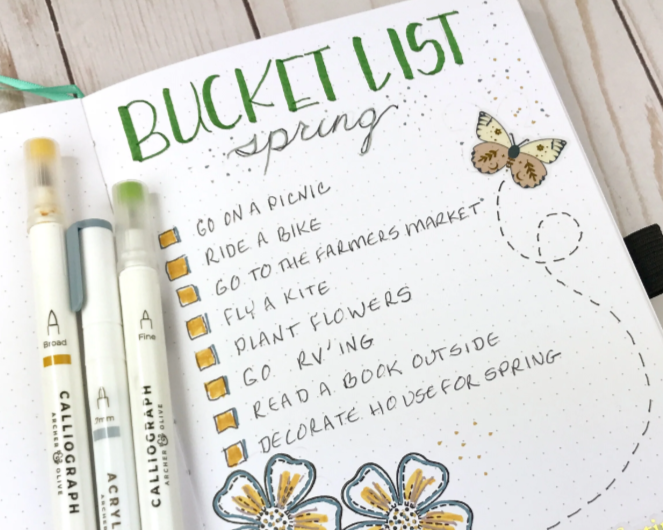 BUCKET LIST
spring
GO ON A PICNIC
RIDE A BIKE
GO TO THE FARMERS MARKET
FLY A KITE
PLANT FLOWERS
GO RV'ING
READ A BOOK OUTSIDE
DECORATE HOUSE FOR SPRING
Broad
CALLIOGRAPH
ARCHER & OLIVE
ACRYL
Fine
CALLIOGRAPH
ARCHER & OLIVE